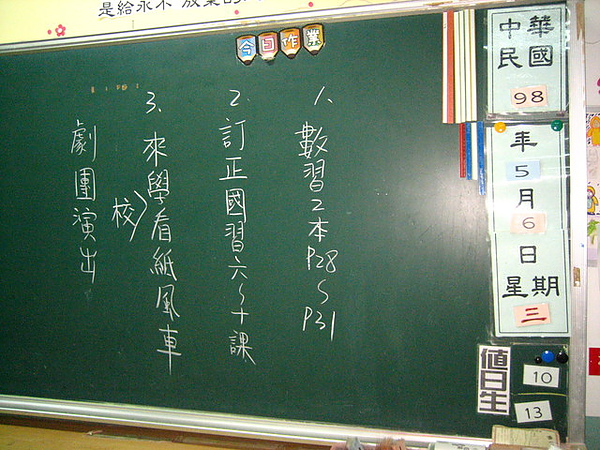 是給永不放棄的
今日作業
1. 數習2本P28~P31
2. 訂正國習六~十課
3. 來學校看紙風車
劇團演出
中華
民國
98
年
5
月
6
日
星期
三
值日生
10
13